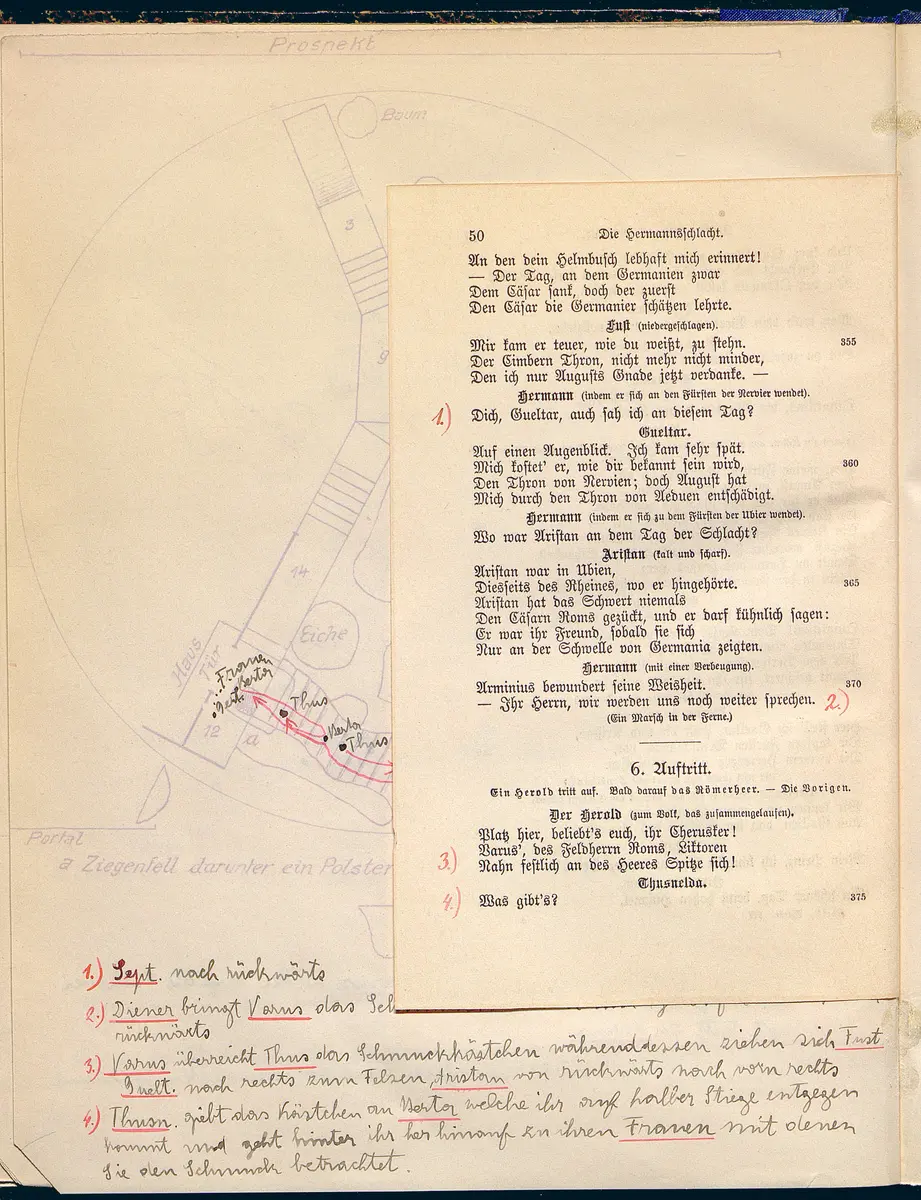 Prospekt
Baum
3
9
14
Eiche
Haus
Tür
Frauen
Berta
Thus
Berta
Thus
12
a
Portal
a Ziegenfell darunter ein Polster
50 Die Hermannsschlacht.
An den dein Helmbusch lebhaft mich erinnert!
— Der Tag, an dem Germanien zwar
Dem Cäsar sank, doch der zuerst
Den Cäsar die Germanier schätzen lehrte.
Fust (niedergeschlagen).
Mir kam er teuer, wie du weißt, zu stehn. 355
Der Cimbern Thron, nicht mehr nicht minder,
Den ich nur Augusts Gnade jetzt verdanke. —
Hermann (indem er sich an den Fürsten der Nervier wendet).
1.) Dich, Gueltar, auch sah ich an diesem Tag?
Gueltar.
Auf einen Augenblick. Ich kam sehr spät.
Mich kostet' er, wie dir bekannt sein wird, 360
Den Thron von Nervien; doch August hat
Mich durch den Thron von Aeduen entschädigt.
Hermann (indem er sich zu dem Fürsten der Ubier wendet).
Wo war Aristan an dem Tag der Schlacht?
Aristan (kalt und scharf).
Aristan war in Ubien,
Diesseits des Rheines, wo er hingehörte. 365
Aristan hat das Schwert niemals
Den Cäsarn Roms gezückt, und er darf kühnlich sagen:
Er war ihr Freund, sobald sie sich
Nur an der Schwelle von Germania zeigten.
Hermann (mit einer Verbeugung).
Arminius bewundert seine Weisheit. 370
— Ihr Herrn, wir werden uns noch weiter sprechen. 2.)
(Ein Marsch in der Ferne.)
6. Auftritt.
Ein Herold tritt auf. Bald darauf das Römerheer. — Die Vorigen.
Der Herold (zum Volk, das zusammengelaufen).
Platz hier, beliebt's euch, ihr Cherusker!
Varus', des Feldherrn Roms, Liktoren
3.) Nahn festlich an des Heeres Spitze sich!
Thusnelda.
4.) Was gibt's? 375
1.) Sept. nach rückwärts
2.) Diener bringt Varus das
rückwärts
3.) Varus überreicht Thus das Schmuckkästchen währenddessen ziehen sich Fust
Guelt. nach rechts zum Felsen, Aristan von rückwärts nach vorn rechts
4.) Thusn. gibt das Kästchen an Berta welche ihr auf halber Stiege entgegen
kommt und geht hinter ihr her hinauf zu ihren Frauen mit denen
Sie den Schmuck betrachtet.